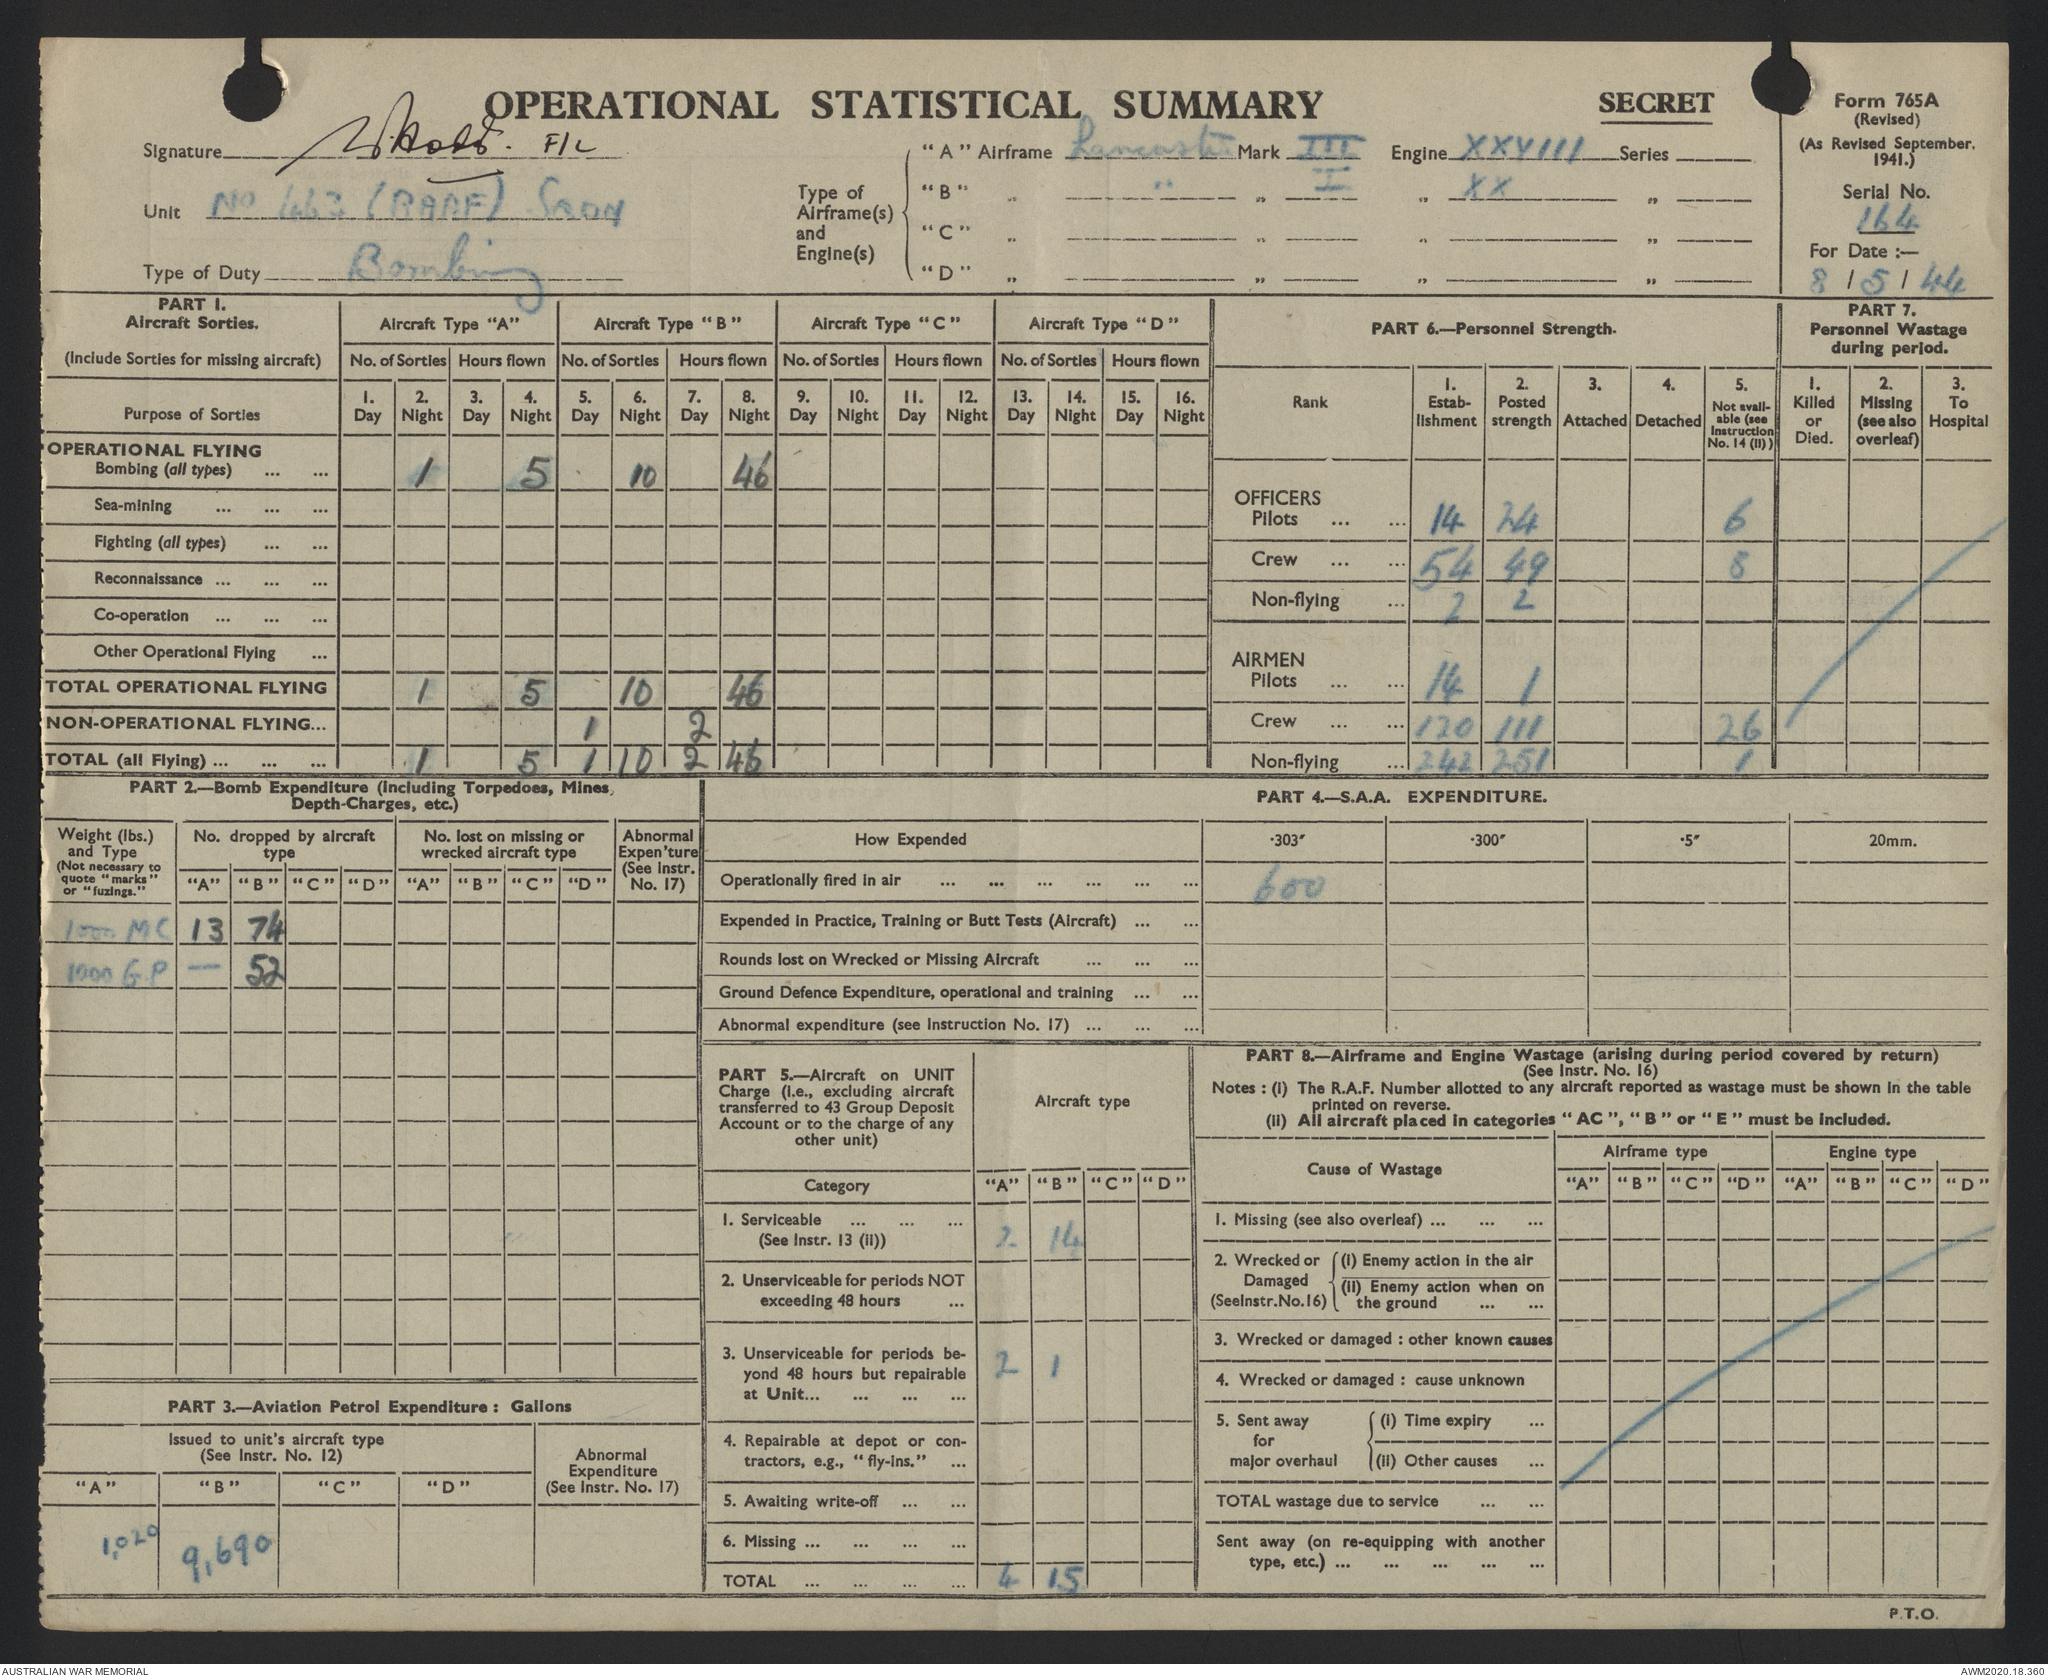 OPERATIONAL STATISTICAL SUMMARY
SECRET
Form 765A
(Revised)
(As Revised September, 1941.)
Serial No.
164
For Date :—
8 / 5 / 44
Signature F/L
Unit No 463 (RAAF) Sqdn
Type of Duty Bombing
Type of Airframe(s) and Engine(s)
"A" Airframe Lancaster Mark III Engine XXVIII Series
"B" „ " „ I „ XX „
"C" „ „ „ „
"D" „ „ „ „
PART I.
Aircraft Sorties.
(Include Sorties for missing aircraft)
Purpose of Sorties
Aircraft Type "A" Aircraft Type "B" Aircraft Type "C" Aircraft Type "D"
No. of Sorties Hours flown No. of Sorties Hours flown No. of Sorties Hours flown No. of Sorties Hours flown
1. Day 2. Night 3. Day 4. Night 5. Day 6. Night 7. Day 8. Night 9. Day 10. Night 11. Day 12. Night 13. Day 14. Night 15. Day 16. Night
OPERATIONAL FLYING
Bombing (all types) ... ... 1 5 10 46
Sea-mining ... ... ...
Fighting (all types) ... ...
Reconnaissance ... ... ...
Co-operation ... ... ...
Other Operational Flying ...
TOTAL OPERATIONAL FLYING 1 5 10 46
NON-OPERATIONAL FLYING... 1 2
TOTAL (all Flying) ... ... ... 1 5 1 10 2 46
PART 6.—Personnel Strength.
Rank
1. Establishment
2. Posted strength
3. Attached
4. Detached
5. Not available (see Instruction No. 14 (ii))
OFFICERS
Pilots ... ... 14 24 6
Crew ... ... 54 49 8
Non-flying ... 2 2
AIRMEN
Pilots ... ... 14 1
Crew ... ... 120 111 26
Non-flying ... 242 251 1
PART 7.
Personnel Wastage during period.
1. Killed or Died.
2. Missing (see also overleaf)
3. To Hospital
PART 2.—Bomb Expenditure (Including Torpedoes, Mines, Depth-Charges, etc.)
Weight (lbs.) and Type
(Not necessary to quote "marks" or "fuzings."
No. dropped by aircraft type
No. lost on missing or wrecked aircraft type
Abnormal Expen'ture (See Instr. No. 17)
"A" "B" "C" "D" "A" "B" "C" "D"
1000 MC 13 74
1000 G.P — 52
PART 3.—Aviation Petrol Expenditure : Gallons
Issued to unit's aircraft type
(See Instr. No. 12)
Abnormal Expenditure
(See Instr. No. 17)
"A" "B" "C" "D"
1,020 9,690
PART 4.—S.A.A. EXPENDITURE.
How Expended ·303" ·300" ·5" 20mm.
Operationally fired in air ... ... ... ... ... ... 600
Expended in Practice, Training or Butt Tests (Aircraft) ... ...
Rounds lost on Wrecked or Missing Aircraft ... ... ...
Ground Defence Expenditure, operational and training ... ...
Abnormal expenditure (see Instruction No. 17) ... ... ...
PART 5.—Aircraft on UNIT
Charge (i.e., excluding aircraft
transferred to 43 Group Deposit
Account or to the charge of any
other unit)
Aircraft type
Category "A" "B" "C" "D"
1. Serviceable ... ... ...
(See Instr. 13 (ii)) 2 14
2. Unserviceable for periods NOT
exceeding 48 hours ...
3. Unserviceable for periods be-
yond 48 hours but repairable 2 1
at Unit... ... ... ...
4. Repairable at depot or con-
tractors, e.g., "fly-ins." ...
5. Awaiting write-off ... ...
6. Missing ... ... ... ...
TOTAL ... ... ... ... 4 15
PART 8.—Airframe and Engine Wastage (arising during period covered by return)
(See Instr. No. 16)
Notes : (i) The R.A.F. Number allotted to any aircraft reported as wastage must be shown in the table
printed on reverse.
(ii) All aircraft placed in categories "AC", "B" or "E" must be included.
Cause of Wastage
Airframe type Engine type
"A" "B" "C" "D" "A" "B" "C" "D"
1. Missing (see also overleaf) ... ... ...
2. Wrecked or Damaged (SeeInstr.No.16)
(i) Enemy action in the air
(ii) Enemy action when on
the ground ... ...
3. Wrecked or damaged : other known causes
4. Wrecked or damaged : cause unknown
5. Sent away for major overhaul
(i) Time expiry ...
(ii) Other causes ...
TOTAL wastage due to service ... ...
Sent away (on re-equipping with another
type, etc.) ... ... ... ... ...
P.T.O.
AUSTRALIAN WAR MEMORIAL
AWM2020.18.360